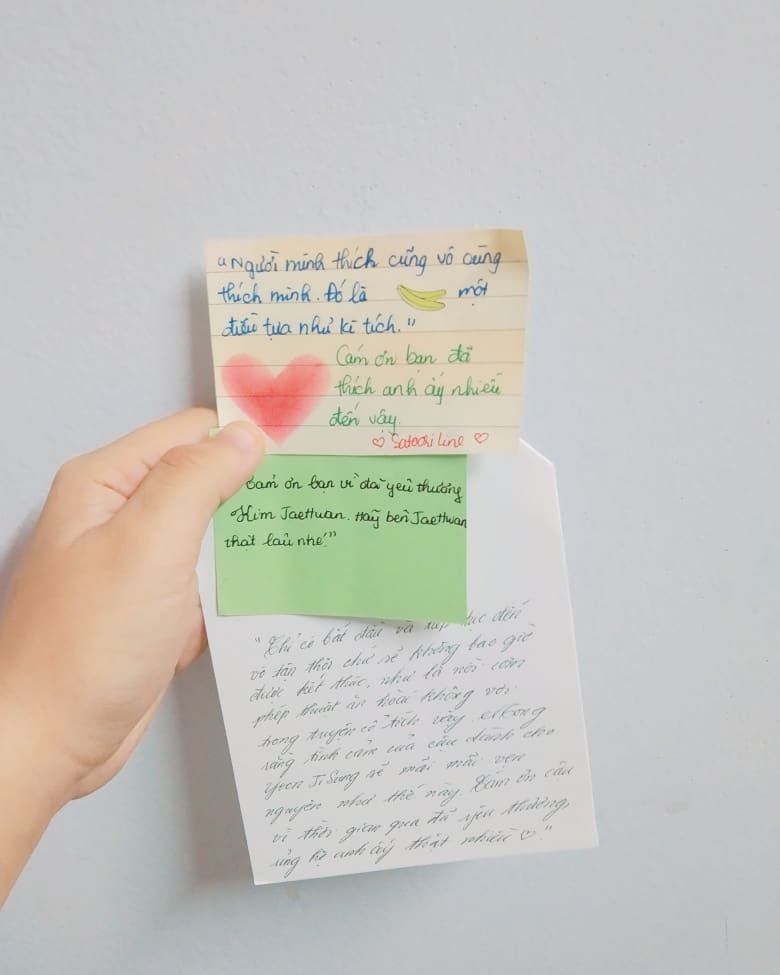 "Người mình thích cũng vô cùng
thích mình. Đó là một
điều tựa như kì tích."
Cám ơn bạn đã
thích anh ấy nhiều
đến vậy.
♡ Satoori Line ♡
Cảm ơn bạn vì đã yêu thương
Kim JaeHwan. Hãy bên JaeHwan
thật lâu nhé."
"Chỉ có bắt đầu và tiếp tục đến
vô tận thôi chứ sẽ không bao giờ
được kết thúc, như là nồi cơm
phép thuật ăn hoài không vơi
trong truyện cổ tích vậy. Mong
rằng tình cảm của cậu dành cho
Yoon JiSung sẽ mãi mãi vẹn
nguyên như thế này. Cảm ơn cậu
vì thời gian qua đã yêu thương,
ủng hộ anh ấy thật nhiều ♡."